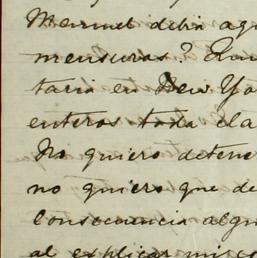 Manuel debía agu
mensuras? Con
taria en New Yo
enteros toda cla
No quiero detene
no quiero que de
consecuencia algu
al explicar mis co